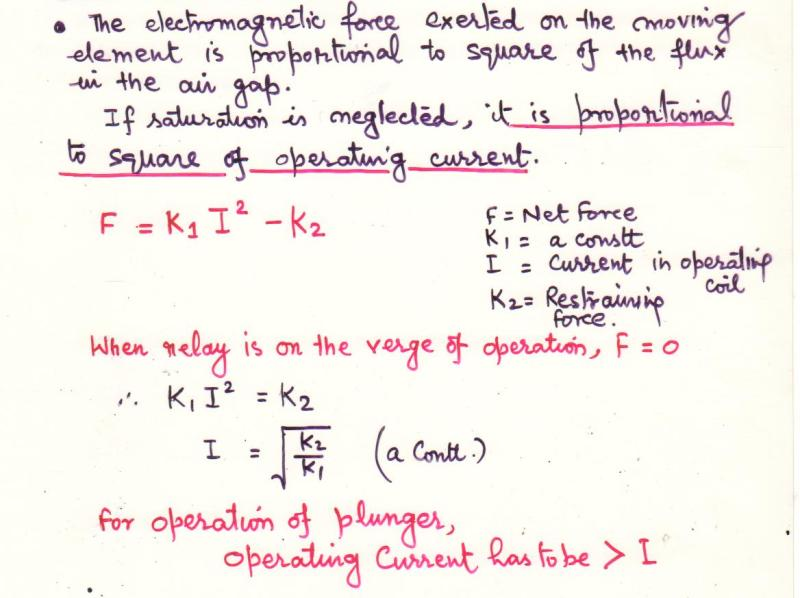 • The electromagnetic force exerted on the moving
element is proportional to square of the flux
in the air gap.
If saturation is neglected, it is proportional
to square of operating current.
F = K₁ I² - K₂
F = Net force
K₁ = a constt
I = Current in operating
coil
K₂ = Restraining
force.
When relay is on the verge of operation, F = 0
∴ K₁ I² = K₂
I = √(K₂/K₁) (a Contt.)
for operation of plunger,
operating Current has to be > I